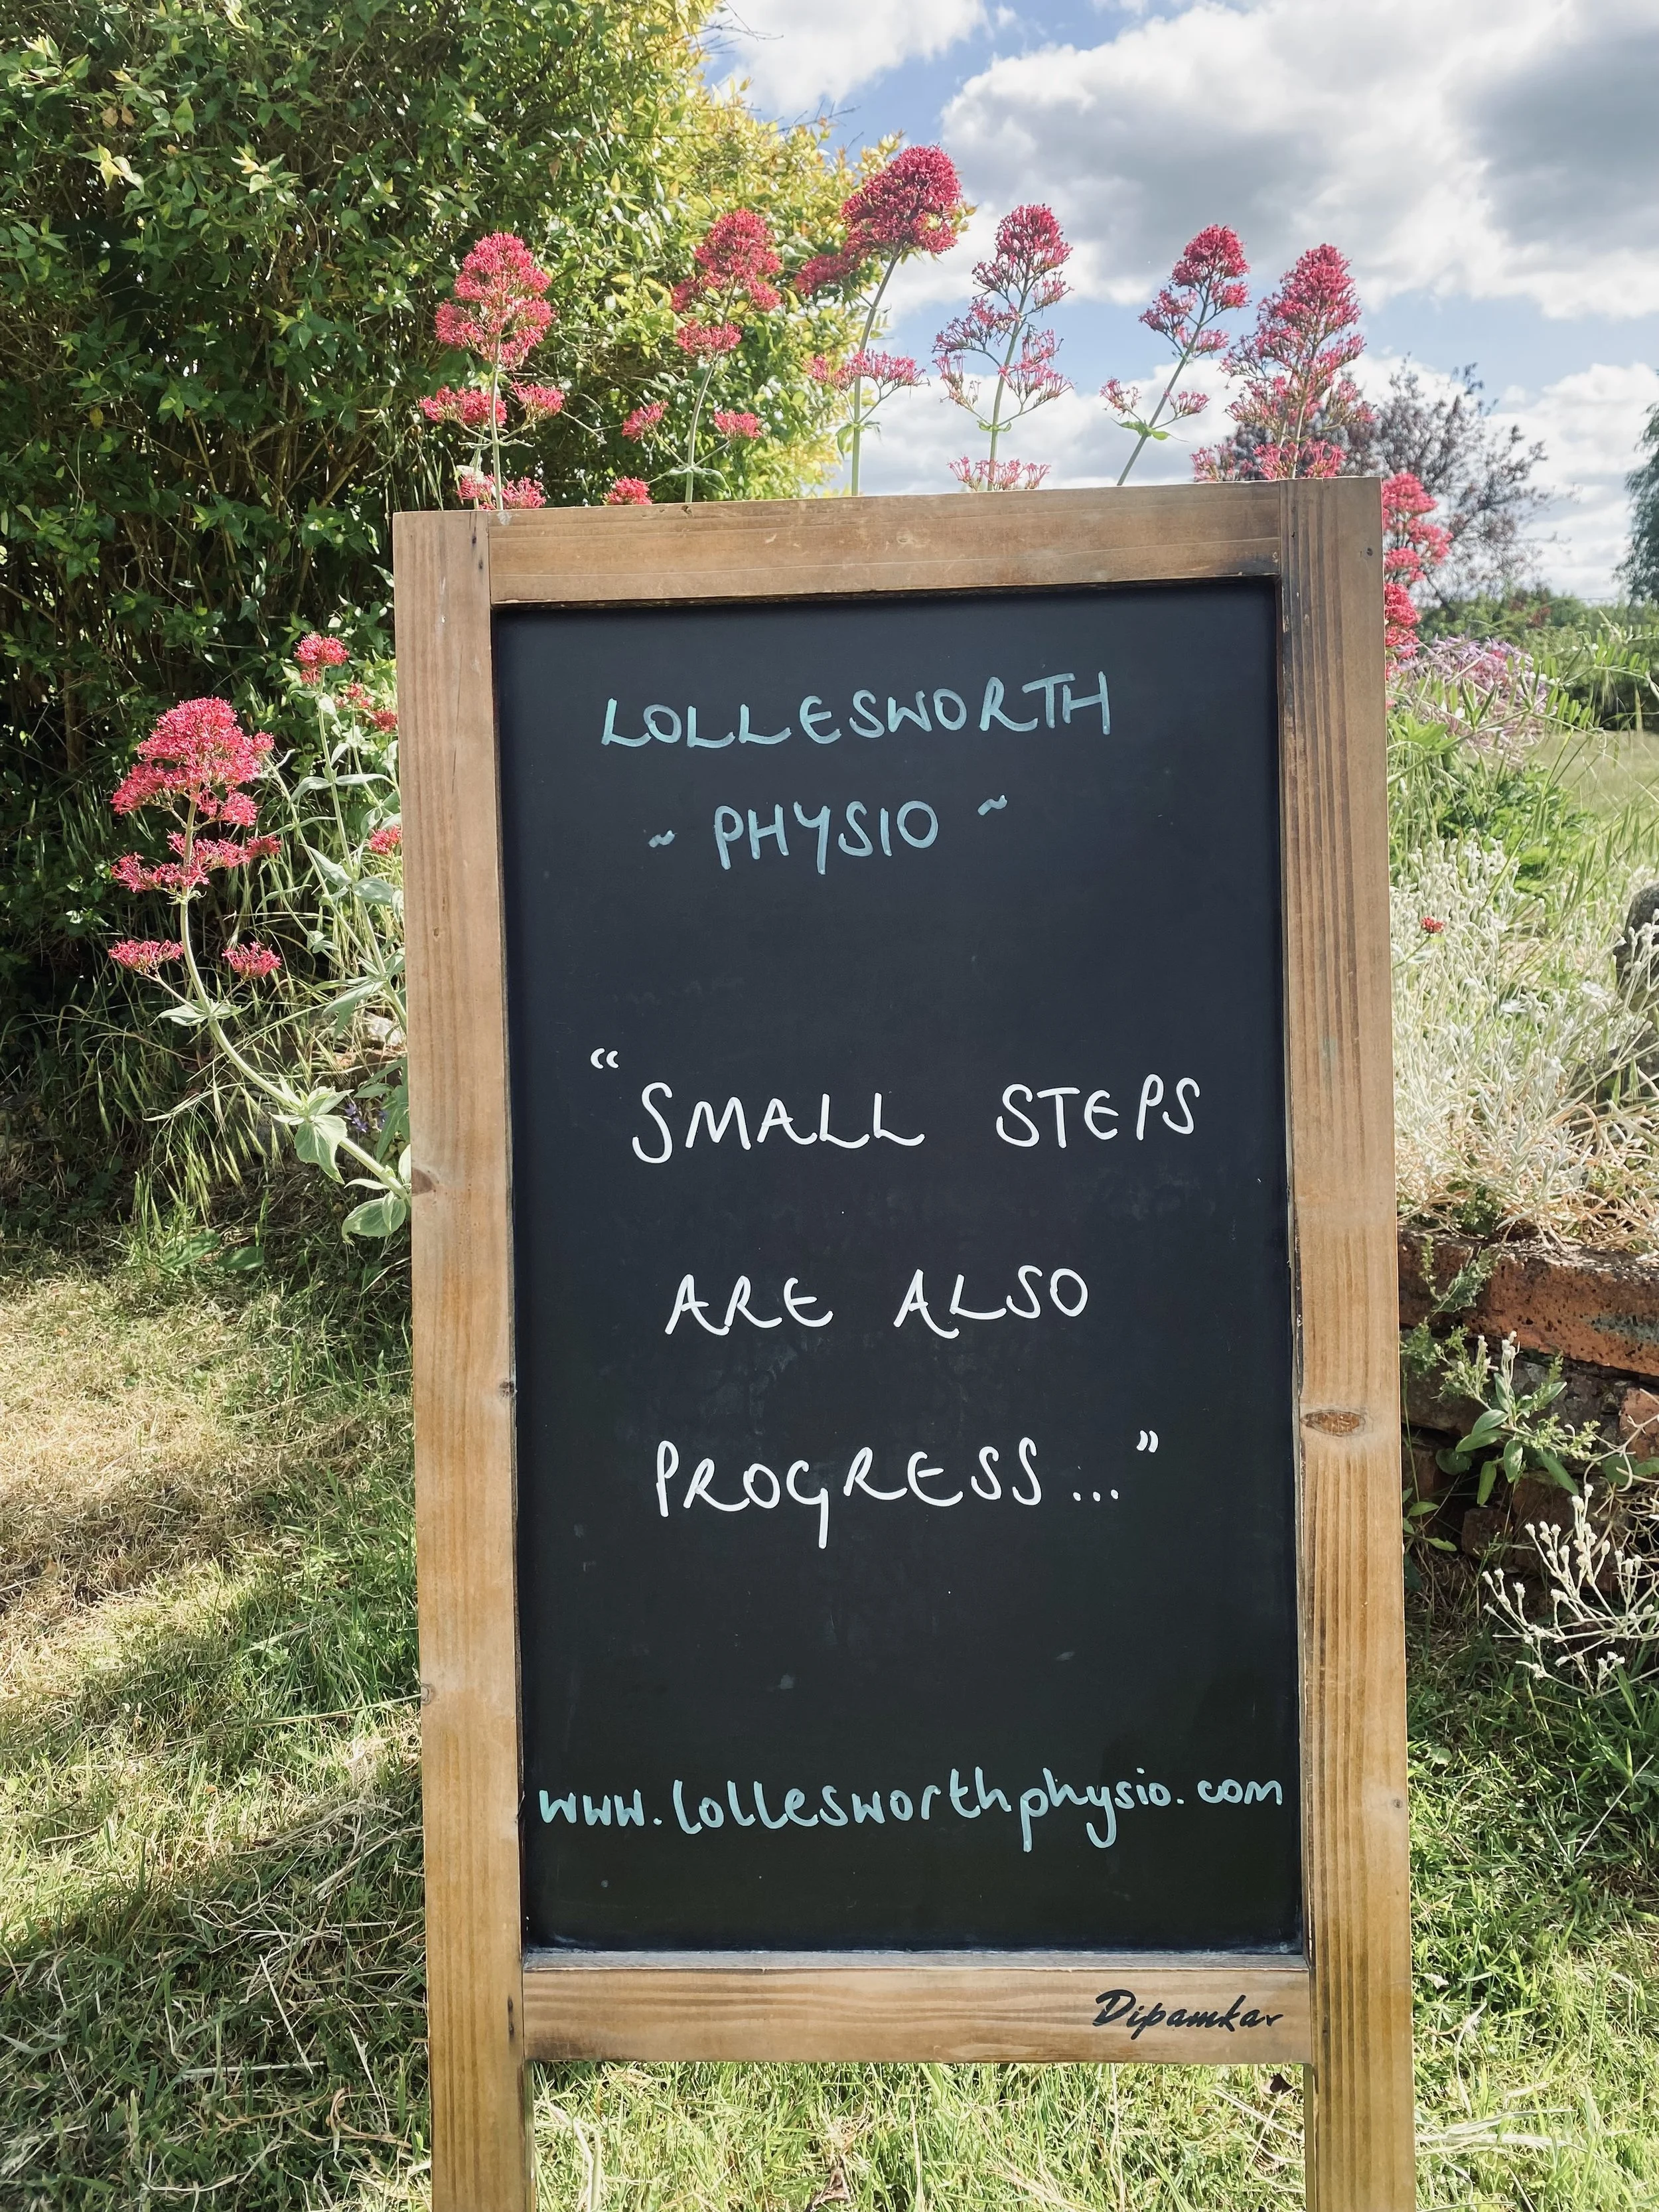 LOLLESWORTH
~ PHYSIO ~
“SMALL STEPS
ARE ALSO
PROGRESS...”
www.lollesworthphysio.com
Dipamkar